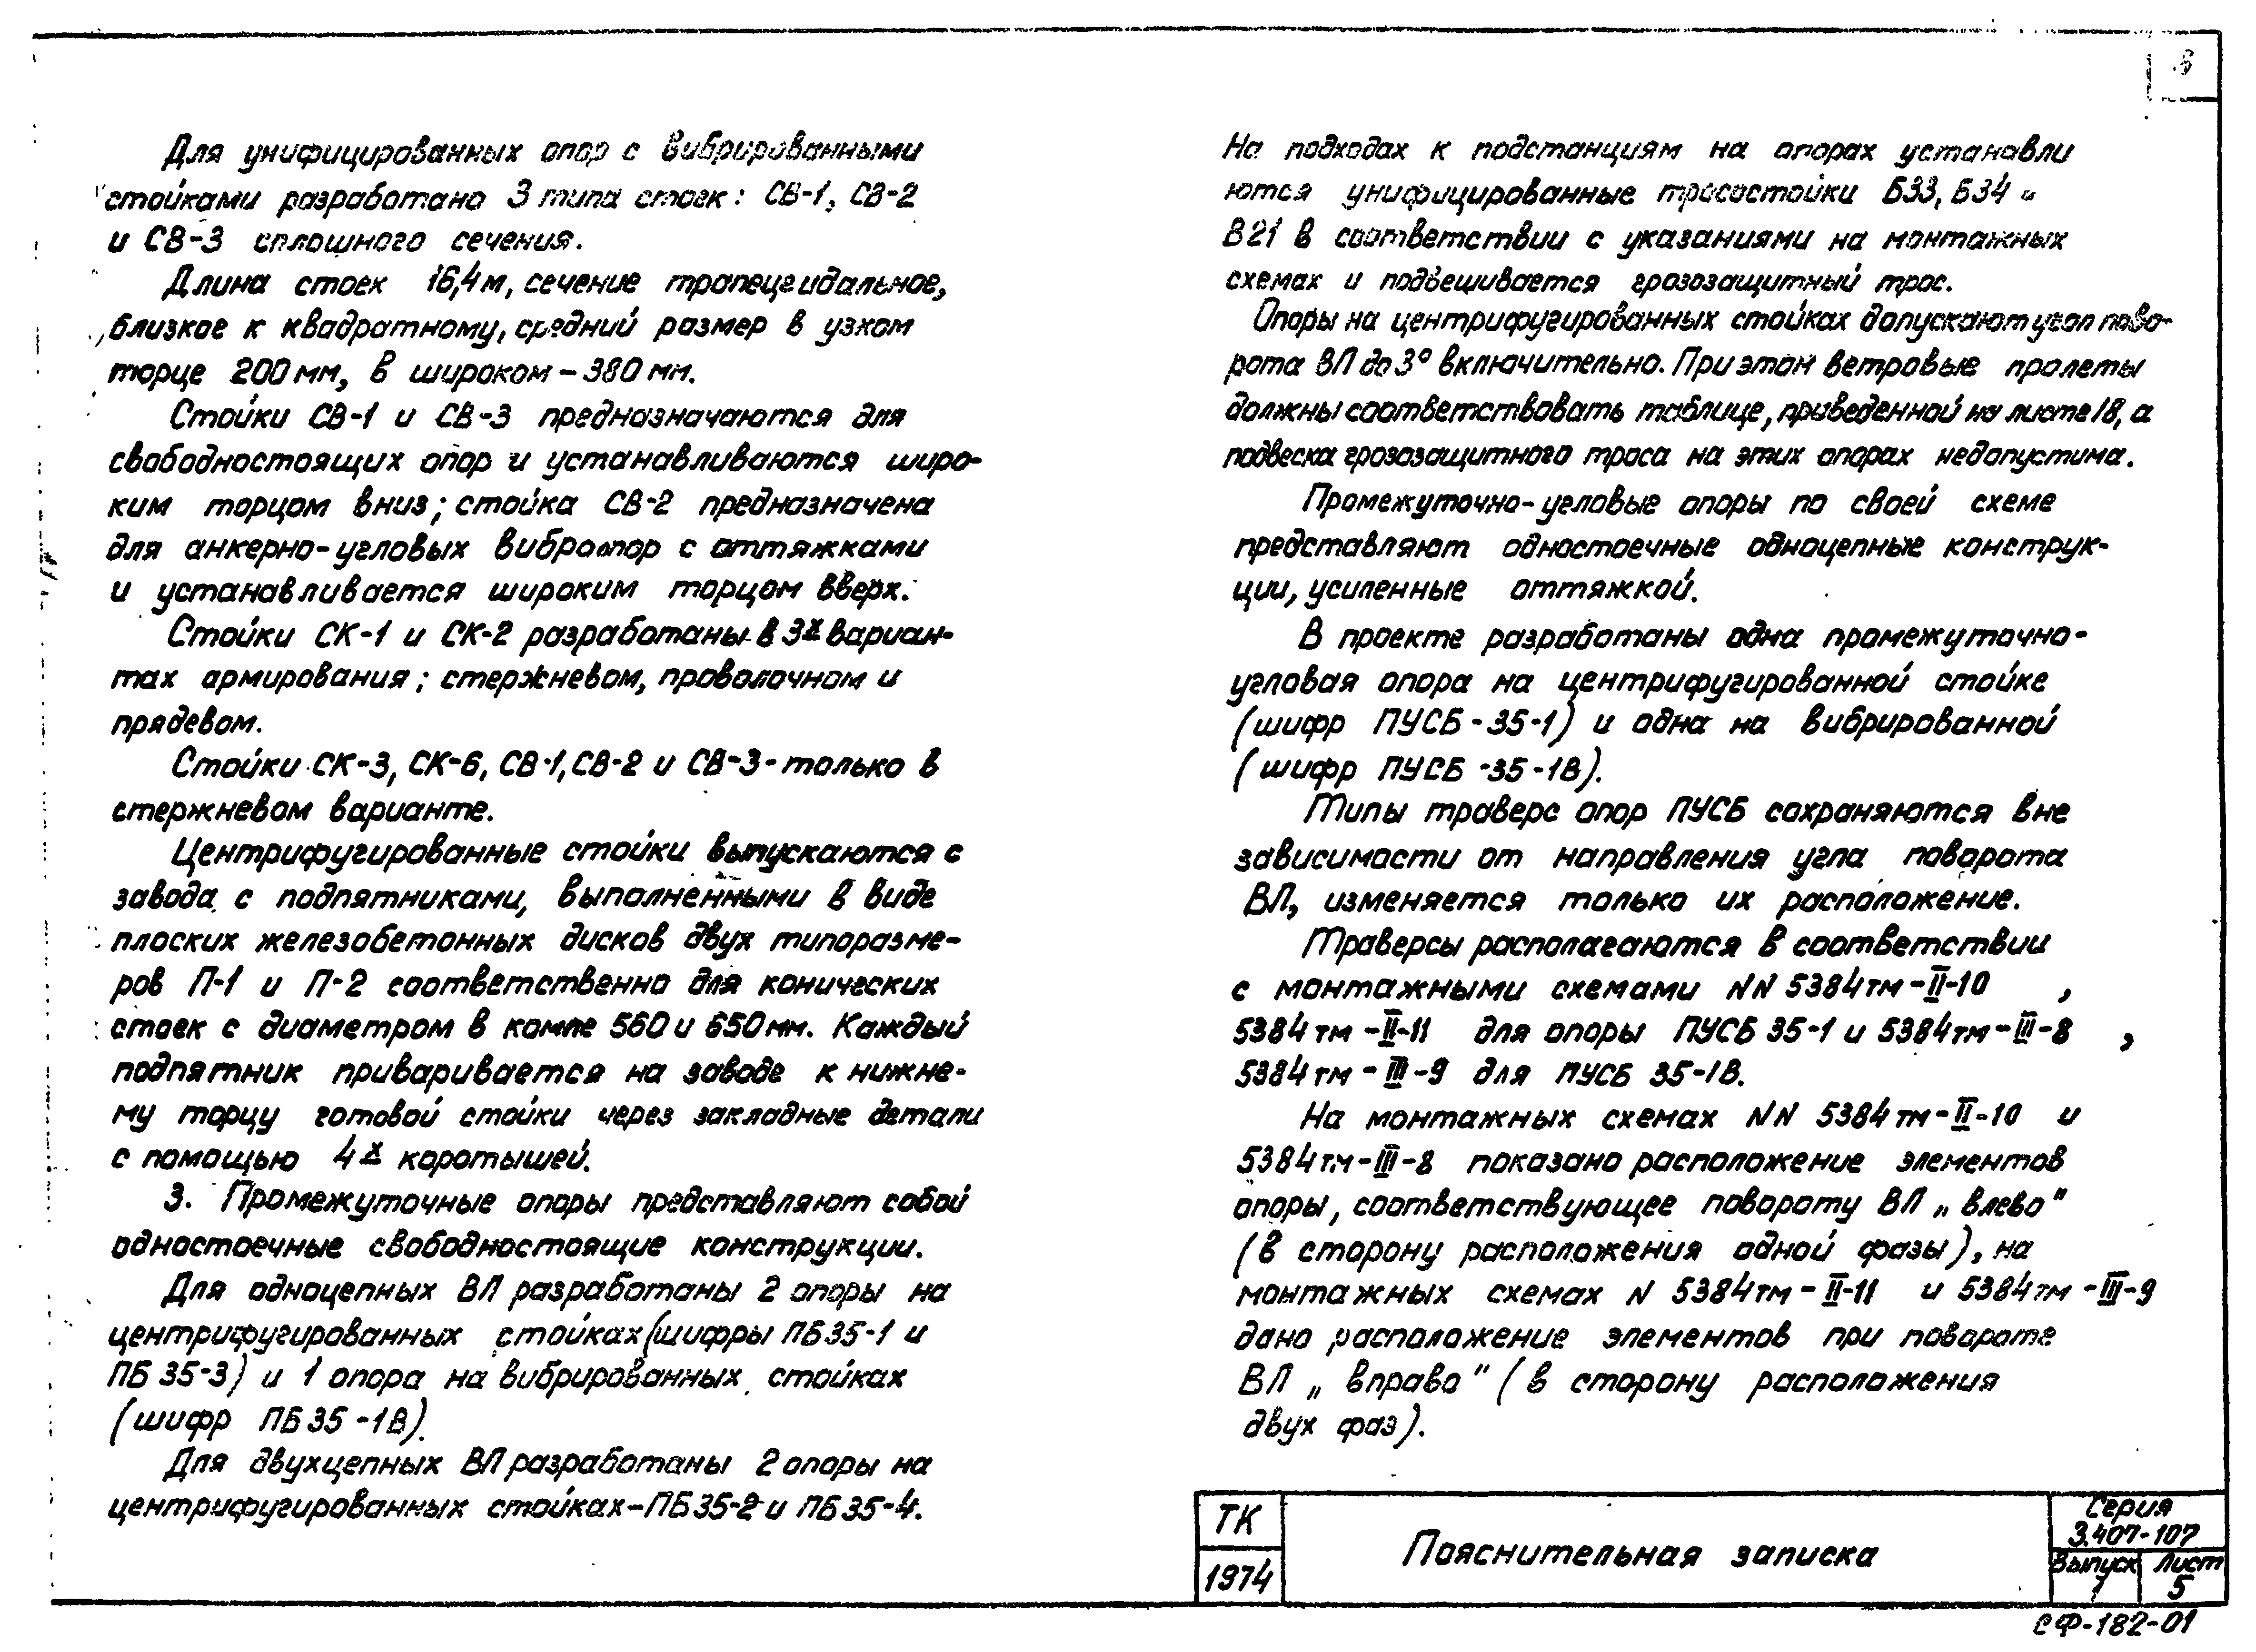 Для унифицированных опор с вибрированными
стойками разработано 3 типа стоек: СВ-1, СВ-2
и СВ-3 сплошного сечения.
Длина стоек 16,4 м, сечение трапецеидальное,
близкое к квадратному, средний размер в узком
торце 200 мм, в широком - 380 мм.
Стойки СВ-1 и СВ-3 предназначаются для
свободностоящих опор и устанавливаются широ-
ким торцом вниз; стойка СВ-2 предназначена
для анкерно-угловых виброопор с оттяжками
и устанавливается широким торцом вверх.
Стойки СК-1 и СК-2 разработаны в 3х вариан-
тах армирования; стержневом, проволочном и
прядевом.
Стойки СК-3, СК-6, СВ-1, СВ-2 и СВ-3 - только в
стержневом варианте.
Центрифугированные стойки выпускаются с
завода с подпятниками, выполненными в виде
плоских железобетонных дисков двух типоразме-
ров П-1 и П-2 соответственно для конических
стоек с диаметром в комле 560 и 650 мм. Каждый
подпятник приваривается на заводе к нижне-
му торцу готовой стойки через закладные детали
с помощью 4х коротышей.
3. Промежуточные опоры представляют собой
одностоечные свободностоящие конструкции.
Для одноцепных ВЛ разработаны 2 опоры на
центрифугированных стойках (шифры ПБ35-1 и
ПБ 35-3) и 1 опора на вибрированных стойках
(шифр ПБ35-1В).
Для двухцепных ВЛ разработаны 2 опоры на
центрифугированных стойках - ПБ35-2 и ПБ35-4.
На подходах к подстанциям на опорах устанавли
ются унифицированные тросостойки Б33, Б34 и
В21 в соответствии с указаниями на монтажных
схемах и подвешивается грозозащитный трос.
Опоры на центрифугированных стойках допускают угол пово-
рота ВЛ до 3° включительно. При этом ветровые пролеты
должны соответствовать таблице, приведенной на листе 18, а
подвеска грозозащитного троса на этих опорах недопустима.
Промежуточно-угловые опоры по своей схеме
представляют одностоечные одноцепные конструк-
ции, усиленные оттяжкой.
В проекте разработаны одна промежуточно-
угловая опора на центрифугированной стойке
(шифр ПУСБ-35-1) и одна на вибрированной
(шифр ПУСБ-35-1В).
Типы траверс опор ПУСБ сохраняются вне
зависимости от направления угла поворота
ВЛ, изменяется только их расположение.
Траверсы располагаются в соответствии
с монтажными схемами NN 5384тм-II-10 ,
5384тм-II-11 для опоры ПУСБ 35-1 и 5384тм-III-8 ,
5384тм-III-9 для ПУСБ 35-1В.
На монтажных схемах NN 5384тм-II-10 и
5384тм-III-8 показано расположение элементов
опоры, соответствующее повороту ВЛ „влево"
(в сторону расположения одной фазы), на
монтажных схемах N 5384тм-II-11 и 5384тм-III-9
дано расположение элементов при повороте
ВЛ „вправо" (в сторону расположения
двух фаз).
ТК
1974
Пояснительная записка
Серия
3.407-107
Выпуск
1
Лист
5
СФ-182-01